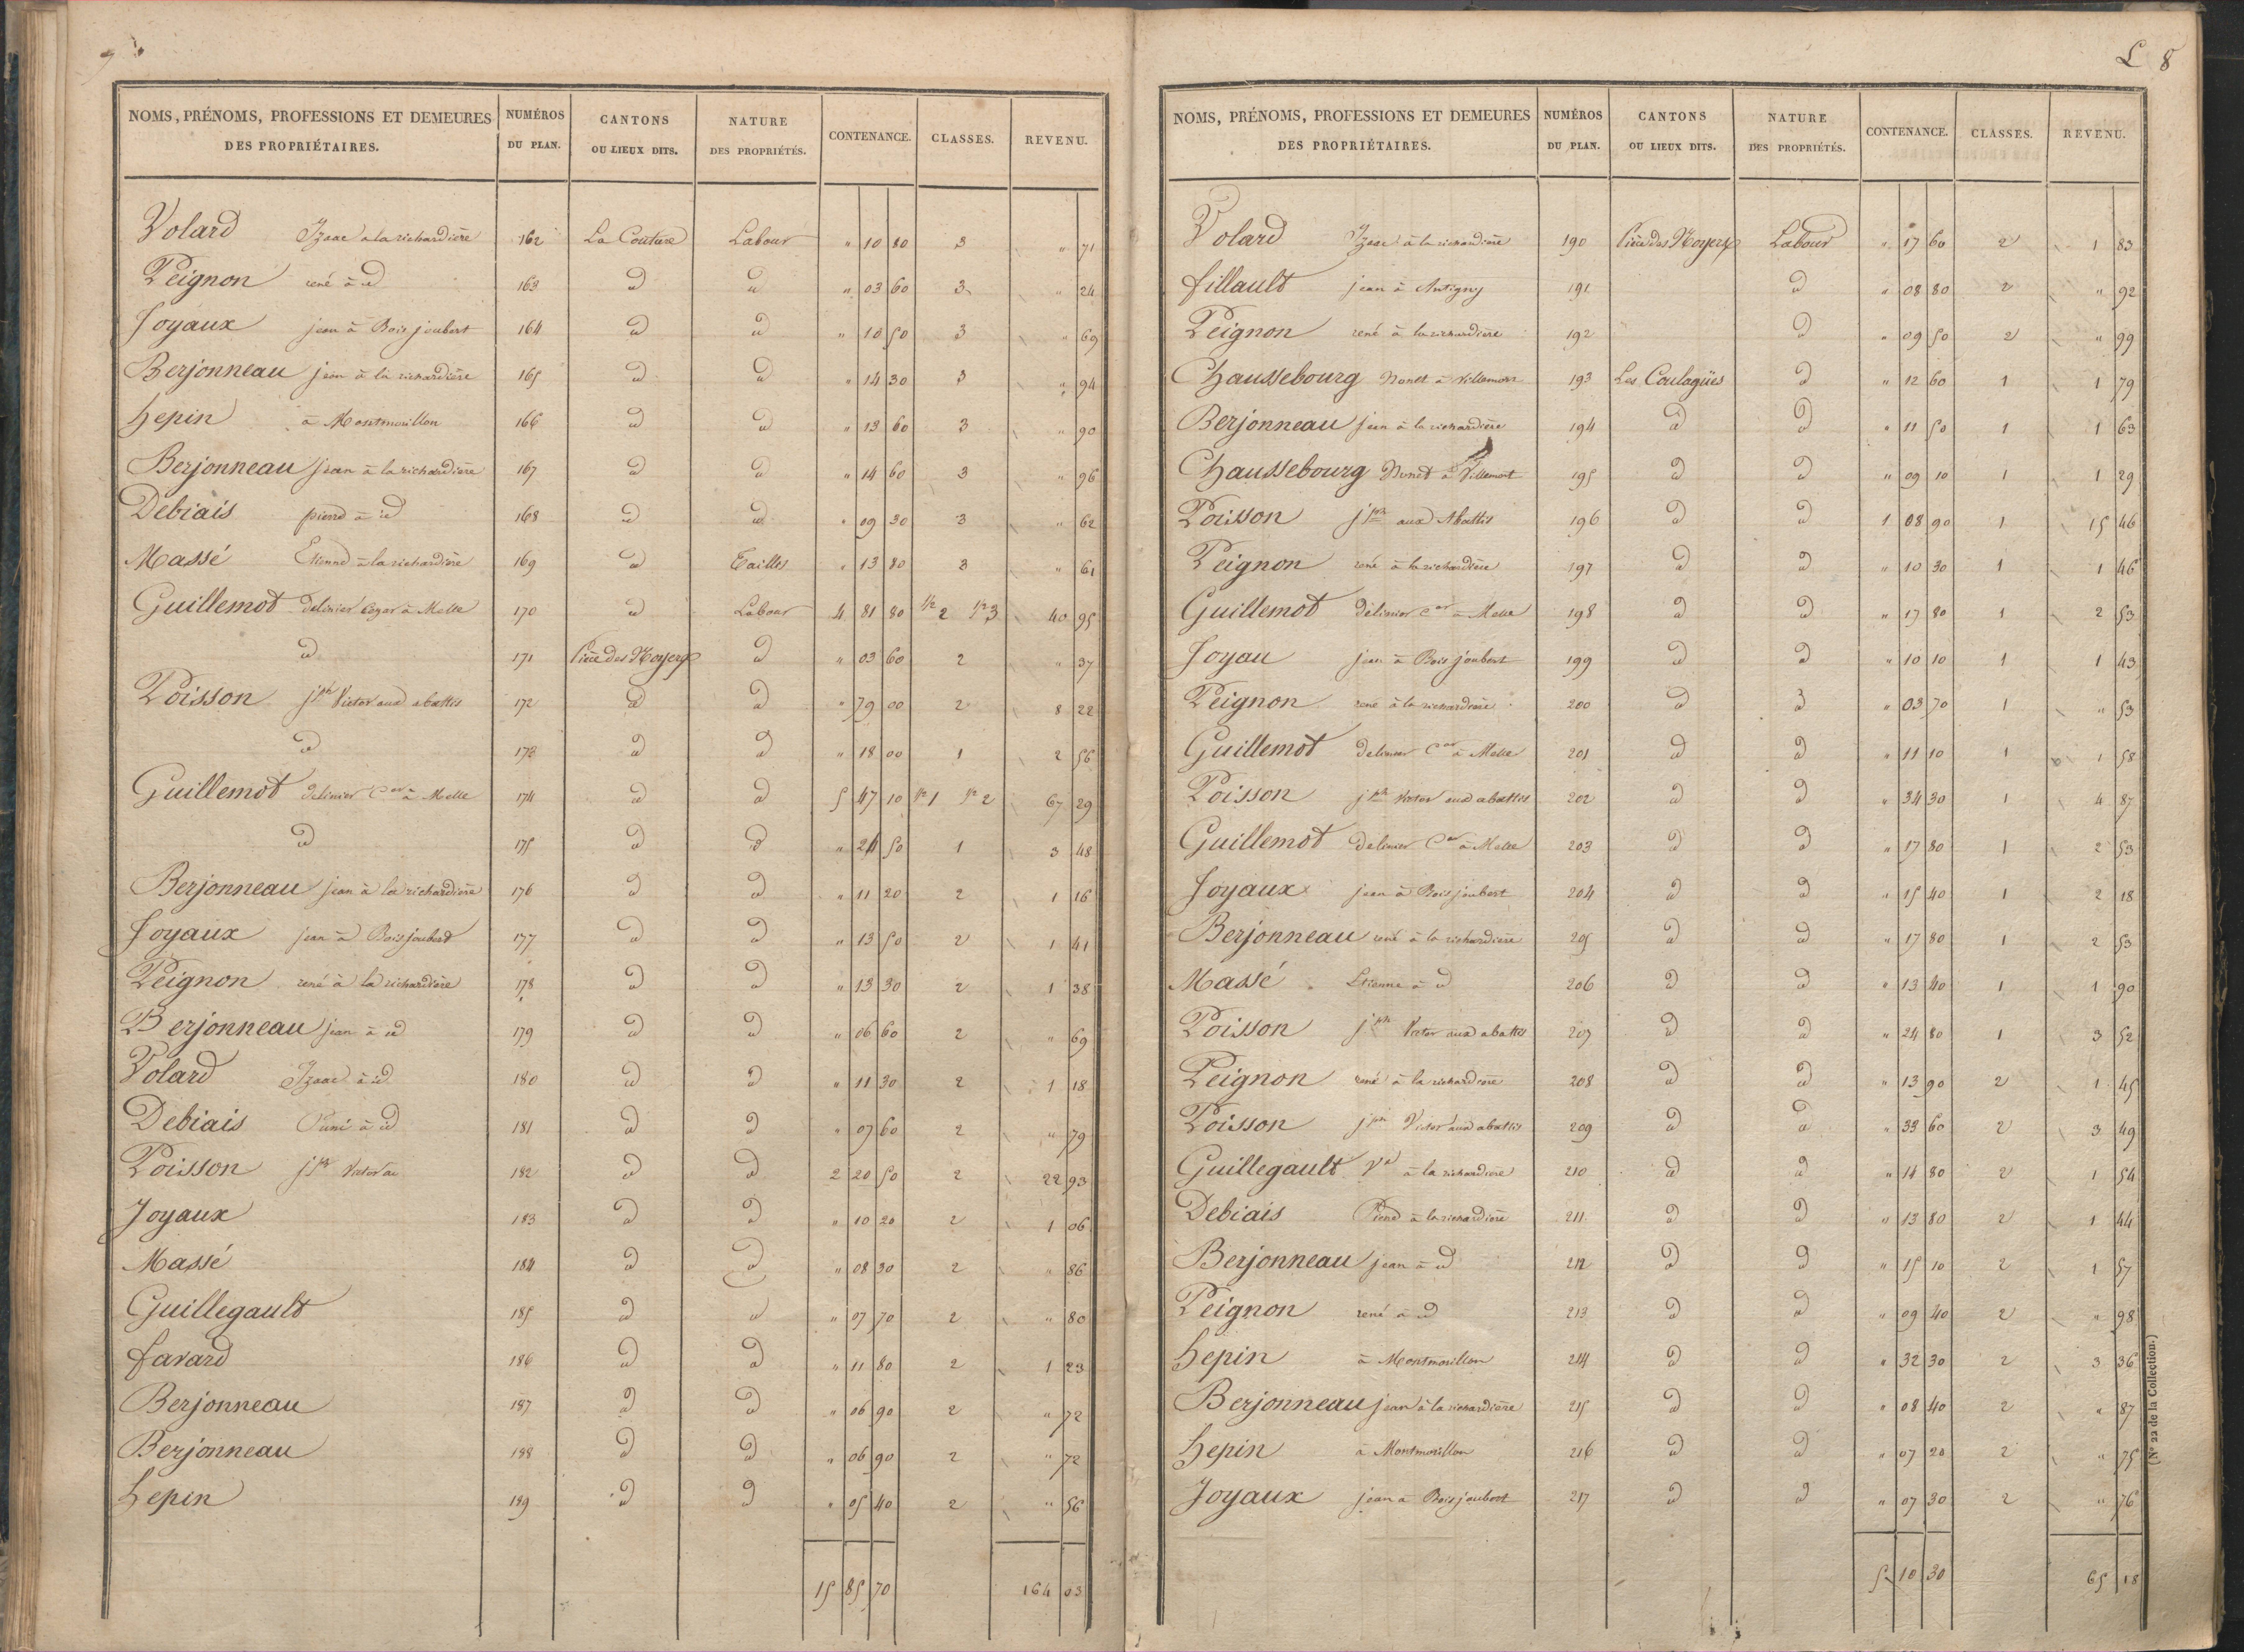 NOMS, PRÉNOMS, PROFESSIONS ET DEMEURES DES PROPRIÉTAIRES. NUMÉROS DU PLAN. CANTONS OU LIEUX DITS. NATURE DES PROPRIÉTÉS. CONTENANCE. CLASSES. REVENU.
Volard Izaac a la richardière 162 La Couture Labour " 10 80 3 " 71
Peignon rené à id 163 id id " 03 60 3 " 24
Joyaux jean à Bois joubert 164 id id " 10 50 3 " 69
Berjonneau jean à la richardière 165 id id " 14 30 3 " 94
hepin à Montmorillon 166 id id " 13 60 3 " 90
Berjonneau jean à la richardière 167 id id " 14 60 3 " 96
Debiais pierre à id 168 id id " 09 30 3 " 62
Massé Etienne à la richardière 169 id Tailles " 13 80 3 " 61
Guillemot delinier à Melle 170 id Labour 4 81 80 1/2 2 1/2 3 40 95
id 171 Pièce des Noyers id " 03 60 2 " 37
Poisson jph Victor aux abattis 172 id id " 79 00 2 8 22
id 173 id id " 18 00 1 2 56
Guillemot delinier Car à Melle 174 id id 5 47 10 1/2 1 1/2 2 67 29
id 175 id id " 24 50 1 3 48
Berjonneau jean à la richardière 176 id id " 11 20 2 1 16
Joyaux jean à Bois joubert 177 id id " 13 50 2 1 41
Peignon rené à la richardière 178 id id " 13 30 2 1 38
Berjonneau jean à id 179 id id " 06 60 2 " 69
Volard Izaac à id 180 id id " 11 30 2 1 18
Debiais à id 181 id id " 07 60 2 " 79
Poisson jph Victor 182 id id 2 20 50 2 22 93
Joyaux 183 id id " 10 20 2 1 06
Massé 184 id id " 08 30 2 " 86
Guillegault 185 id id " 07 70 2 " 80
favard 186 id id " 11 80 2 1 23
Berjonneau 187 id id " 06 90 2 " 72
Berjonneau 188 id id " 06 90 2 " 72
hepin 189 id id " 05 40 2 " 56
15 85 70 164 03
8
NOMS, PRÉNOMS, PROFESSIONS ET DEMEURES DES PROPRIÉTAIRES. NUMÉROS DU PLAN. CANTONS OU LIEUX DITS. NATURE DES PROPRIÉTÉS. CONTENANCE. CLASSES. REVENU.
Volard Izaac à la richardière 190 Pièce des Noyers Labour " 17 60 2 1 83
fillault jean à Antigny 191 id " 08 80 2 " 92
Peignon rené à la richardière 192 id " 09 50 2 " 99
Chaussebourg à Villemort 193 Les Coulagües id " 12 60 1 1 79
Berjonneau jean à la richardière 194 id id " 11 50 1 1 63
Chaussebourg à Villemort 195 id id " 09 10 1 1 29
Poisson jph aux Abattis 196 id id 1 08 90 1 15 46
Peignon rené à la richardière 197 id id " 10 30 1 1 46
Guillemot delinier Car à Melle 198 id id " 17 80 1 2 53
Joyau jean à Bois joubert 199 id id " 10 10 1 1 43
Peignon rené à la richardière 200 id id " 03 70 1 " 53
Guillemot delinier Car à Melle 201 id id " 11 10 1 1 58
Poisson jph Victor aux abattis 202 id id " 34 30 1 4 87
Guillemot delinier Car à Melle 203 id id " 17 80 1 2 53
Joyaux jean à Bois joubert 204 id id " 15 40 1 2 18
Berjonneau rené à la richardière 205 id id " 17 80 1 2 53
Massé Etienne à id 206 id id " 13 40 1 1 90
Poisson jph Victor aux abattis 207 id id " 24 80 1 3 52
Peignon rené à la richardière 208 id id " 13 90 2 1 45
Poisson jph Victor aux abattis 209 id id " 33 60 2 3 49
Guillegault Ve à la richardière 210 id id " 14 80 2 1 54
Debiais Pierre à la richardière 211 id id " 13 80 2 1 44
Berjonneau jean à id 212 id id " 15 10 2 1 57
Peignon rené à id 213 id id " 09 40 2 " 98
hepin à Montmorillon 214 id id " 32 30 2 3 36
Berjonneau jean à la richardière 215 id id " 08 40 2 " 87
hepin à Montmorillon 216 id id " 07 20 2 " 75
Joyaux jean à Bois joubert 217 id id " 07 30 2 " 76
5 10 30 65 18
(N° 22 de la Collection.)